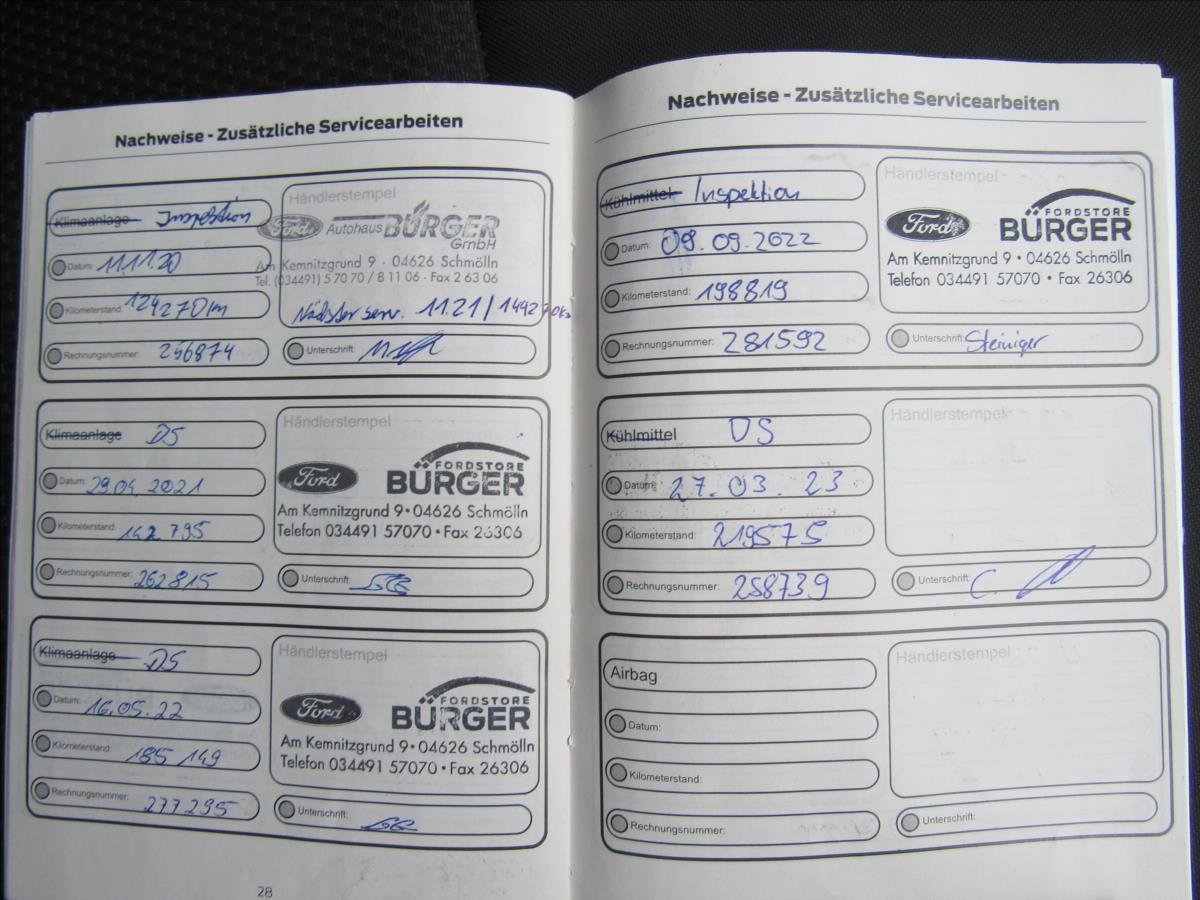 Nachweise - Zusätzliche Servicearbeiten
Klimaanlage Inspektion
Händlerstempel
Ford Autohaus BÜRGER
GmbH
Am Kemnitzgrund 9 · 04626 Schmölln
Tel. (034491) 5 70 70 / 8 11 06 · Fax 2 63 06
Datum: 11.11.20
Kilometerstand: 124270km
Nächster serv. 11.21 / 144270km
Rechnungsnummer: 256874
Unterschrift:
Klimaanlage DS
Händlerstempel
Ford FORDSTORE
BÜRGER
Am Kemnitzgrund 9 • 04626 Schmölln
Telefon 034491 57070 • Fax 26306
Datum: 29.04.2021
Kilometerstand: 142 795
Rechnungsnummer: 262815
Unterschrift:
Klimaanlage DS
Händlerstempel
Ford FORDSTORE
BÜRGER
Am Kemnitzgrund 9 • 04626 Schmölln
Telefon 034491 57070 • Fax 26306
Datum: 16.05.22
Kilometerstand: 185 149
Rechnungsnummer: 277295
Unterschrift:
28
Nachweise - Zusätzliche Servicearbeiten
Kühlmittel Inspektion
Händlerstempel
Ford FORDSTORE
BÜRGER
Am Kemnitzgrund 9 • 04626 Schmölln
Telefon 034491 57070 • Fax 26306
Datum: 09.09.2022
Kilometerstand: 198819
Rechnungsnummer: 281592
Unterschrift: Steiniger
Kühlmittel DS
Händlerstempel
Datum: 27.03.23
Kilometerstand: 219575
Rechnungsnummer: 258739
Unterschrift:
Airbag
Händlerstempel
Datum:
Kilometerstand:
Rechnungsnummer:
Unterschrift: